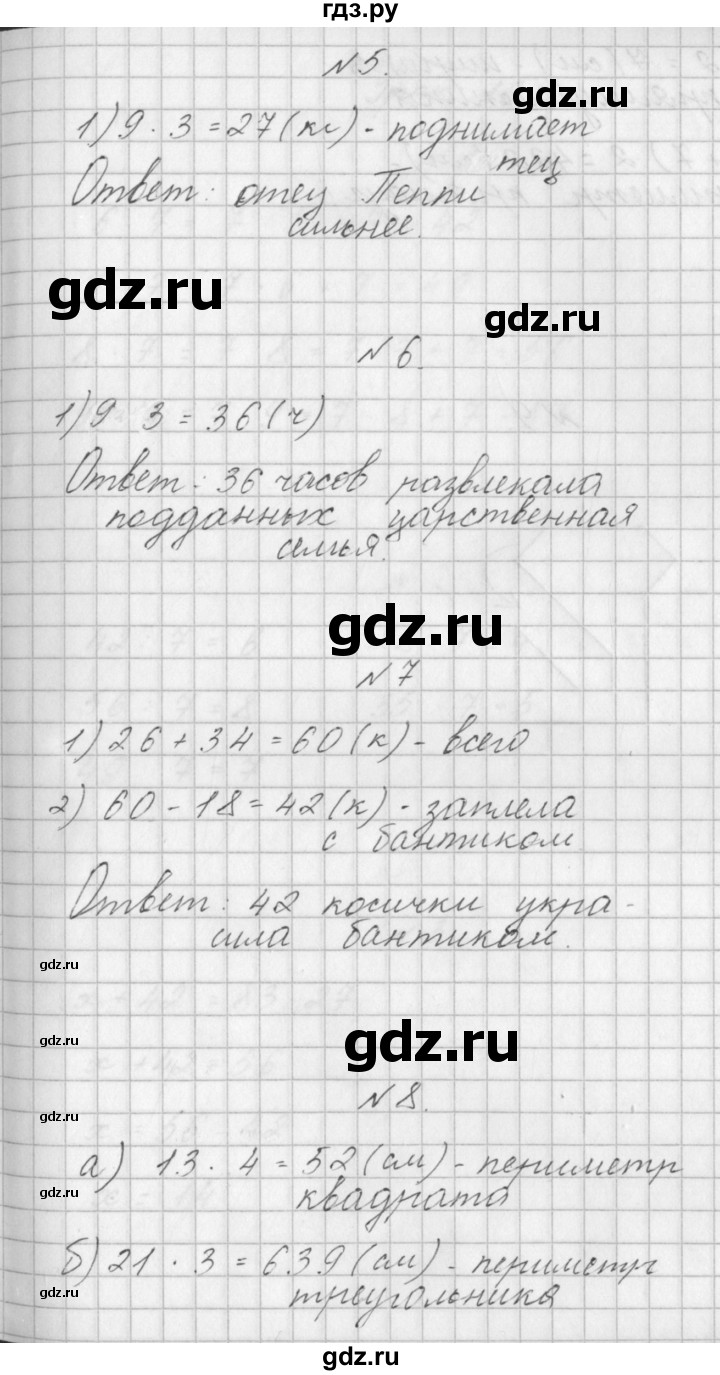 гдз.ру
№5.
gdz.ru
1) 9 · 3 = 27 (кг) - поднимает
тец
Ответ: отец Пеппи
сильнее.
gdz.ru
gdz.ru
№6.
1) 9 3 = 36 (ч)
Ответ: 36 часов развлекала
подданных царственная
семья.
gdz.ru
№7
1) 26 + 34 = 60 (к) - всего
2) 60 - 18 = 42 (к) - заплела
с бантиком
Ответ: 42 косички укра-
сила бантиком.
gdz.ru
gdz.ru
gdz.ru
№8.
gdz.ru
а) 13 · 4 = 52 (см) - периметр
gdz.ru
квадрата
б) 21 · 3 = 639 (см) - периметр
gdz.ru
треугольника
gdz.ru